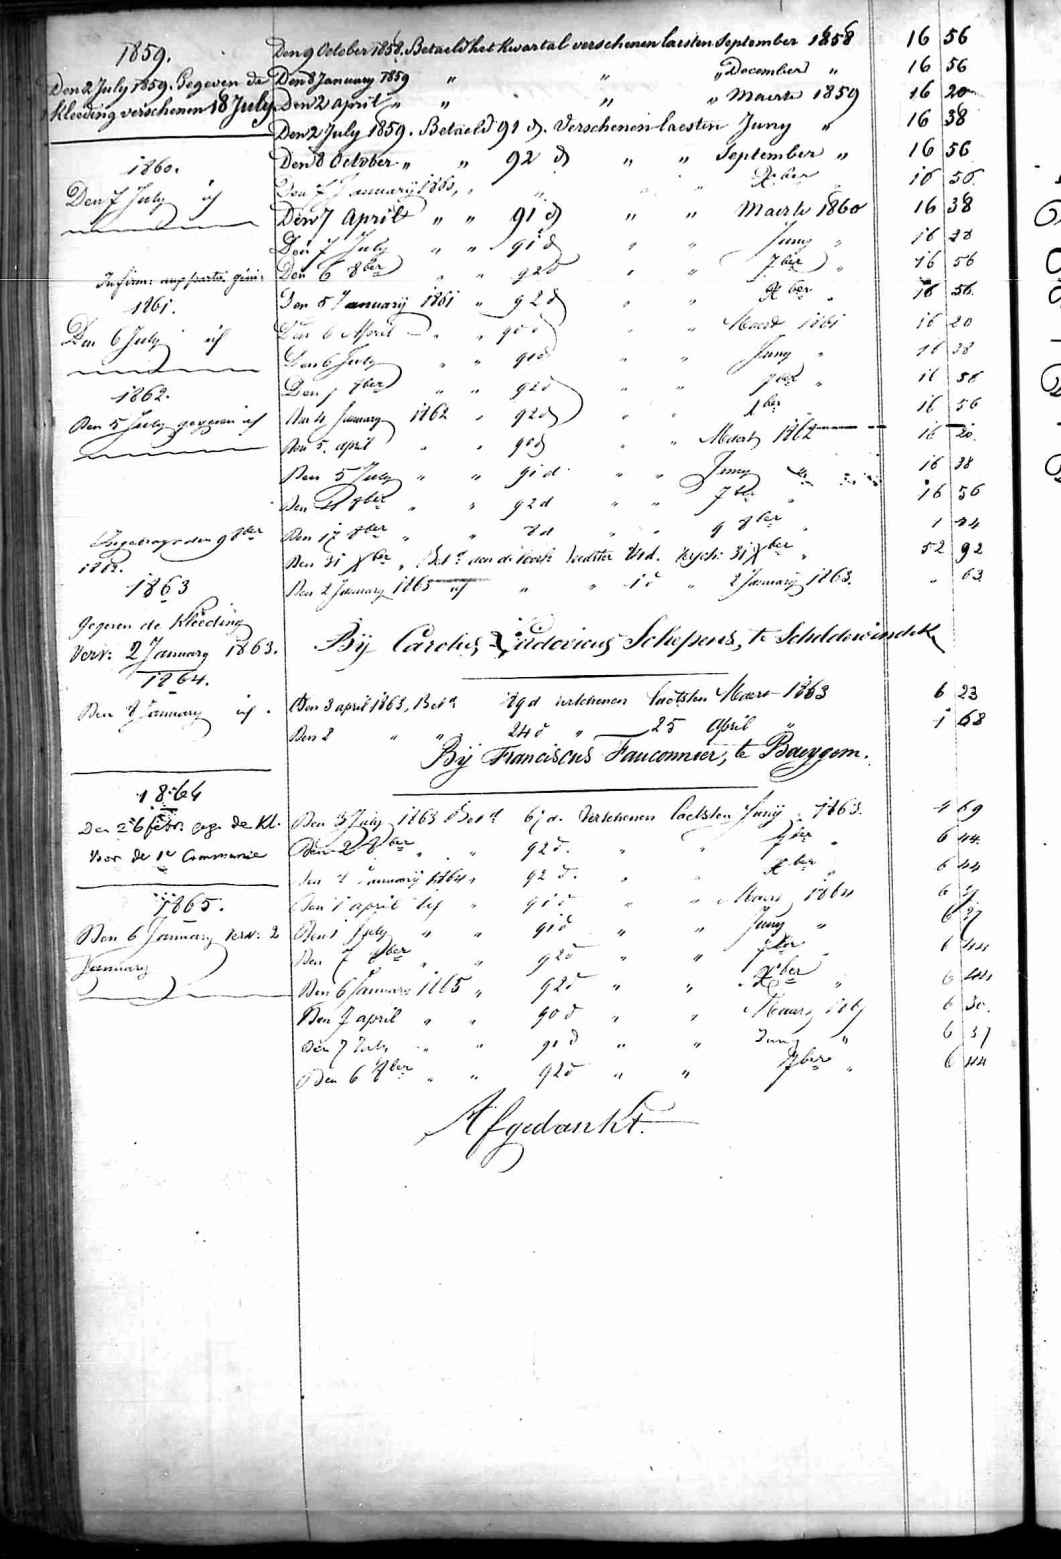 1859.
Den 2 July 1859. Gegeven de
kleeding verschenen 18 July.
1860.
Den 7 July id
1861.
Den 6 July id
1862.
Den 5 July gegeven id
1862.
1863
Gegeven de kleeding
Versc: 2 January 1863.
1864.
Den 2 January id.
1864
Den 26 feb. geg. de kl.
voor de 1e Communie
1865.
Den 6 January vers: 2
January
Den 9 October 1858. Betaeld het kwartal verschenen laesten September 1858 16 56
Den 8 January 1859 " " " December " 16 56
Den 2 april " " " " Maerte 1859 16 20
Den 2 July 1859. Betaeld 91 d. verschenen laesten Juny " 16 38
Den 8 October " " 92 d " " September " 16 56
Den 7 January 1860, " " " " Xber 16 56
Den 7 April " " 91 d " " Maerte 1860 16 38
Den 7 July " " 91 d " " Juny " 16 38
Den 6 8ber " " 92 d " " 7ber " 16 56
Den 5 January 1861 " 92 d " " Xber " 16 56
Den 6 April " " 90 d " " Maert 1861 16 20
Den 6 July " " 91 d " " Juny " 16 38
Den 8ber " " 92 d " " 7ber " 16 56
Den 4 January 1862 " 92 d " " Xber " 16 56
Den 5 april " " 90 d " " Maert 1862 16 20
Den 5 July " " 91 d " " Juny 16 38
Den 8ber " " 92 d " " 7ber " 16 56
Den 17 8ber " " d " " 9 8ber " 1 44
Den 31 Xber " 31 Xber " 52 92
Den 2 January 1863 id " " 1 d " 2 January 1863. " 63
Bij Carolus Ludovicus Schepens, te Scheldewindeke
Den 3 april 1863, Bet d 89 d verschenen laetsten Maert 1863 6 23
Den 2 " " 24 d " 25 April " 1 68
Bij Franciscus Fauconnier, te Baeygem.
Den 3 July 1863 Bet d 67 d. verschenen laetsten Juny 1863. 4 69
Den 2 8ber " " 92 d. " " 7ber " 6 44
Den 2 January 1864 " 92 d. " " Xber " 6 44
Den 1 april id " 91 d " " Maert 1864 6 37
Den 1 July " " 91 d " " Juny " 6 37
Den 7 8ber " " 92 d " " 7ber " 6 44
Den 6 January 1865 " 92 d " " Xber " 6 44
Den 7 april " " 90 d " " Maert 1865 6 30
Den 7 July " " 91 d " " Juny " 6 37
Den 6 8ber " " 92 d " " 7ber " 6 44
Afgedankt.